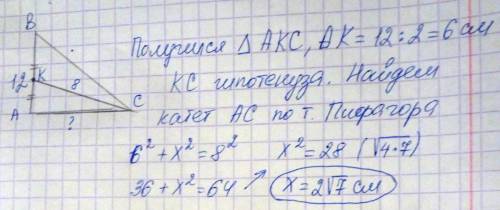 B
12
K
8
A
C
?
Получился △ AKC, AK = 12 : 2 = 6 см
KC гипотенуза. Найдем
катет AC по т. Пифагора
6² + x² = 8²
x² = 28 (√4·7)
36 + x² = 64 ↗
x = 2√7 см